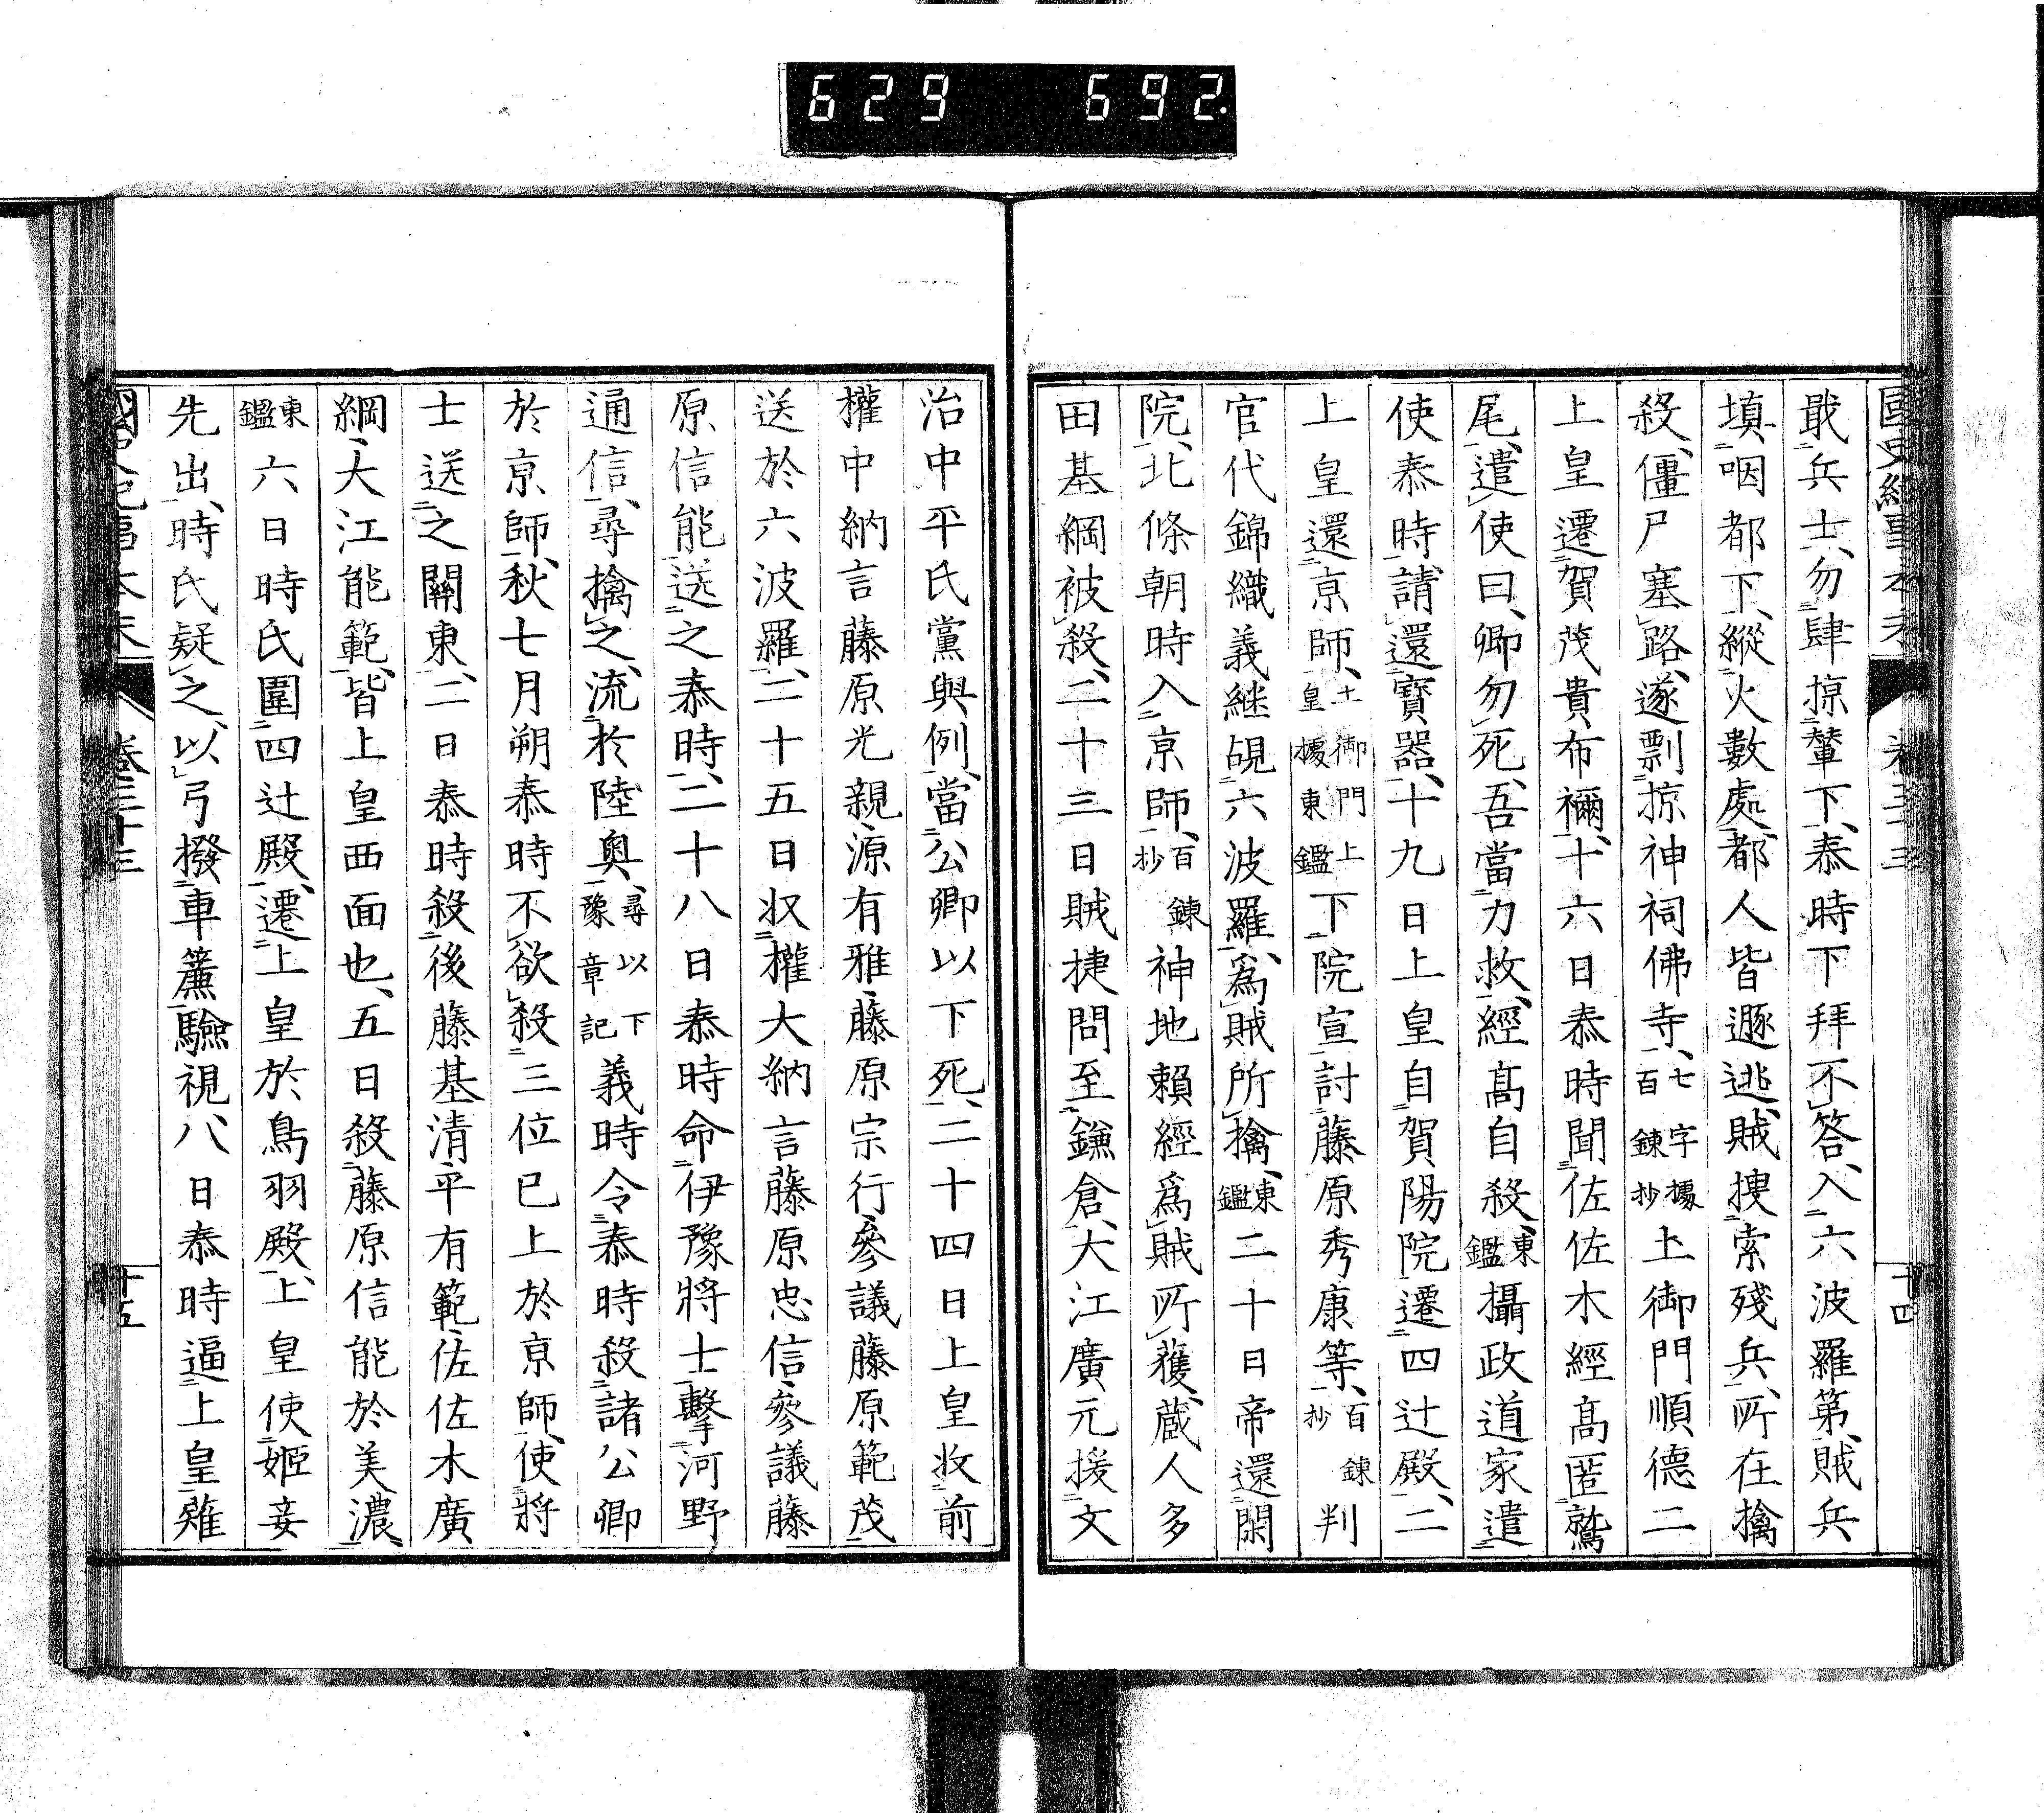 629 692
國史紀事本末 卷三十三 十四
戢兵士、勿肆掠輦下、泰時下拜不答、入六波羅第、賊兵
填咽都下、縱火數處、都人皆遯逃、賊捜索殘兵、所在擒
殺、僵尸塞路、遂剽掠神祠佛寺、七字據百鍊抄土御門順德二
上皇遷賀茂貴布禰、十六日泰時聞佐佐木經高匿鷲
尾、遣使曰、卿勿死、吾當力救、經高自殺、東鑑攝政道家遣
使泰時、請還寶器、十九日上皇自賀陽院遷四辻殿、二
上皇還京師、土御門上皇據東鑑下院宣討藤原秀康等、百鍊抄判
官代錦織義継覘六波羅、爲賊所擒、東鑑二十日帝還閑
院、北條朝時入京師、百鍊抄神地賴經爲賊所獲、蔵人多
田基綱被殺、二十三日賊捷問至鎌倉、大江廣元援文
治中平氏黨與例、當公卿以下死、二十四日上皇收前
權中納言藤原光親、源有雅、藤原宗行、參議藤原範茂
送於六波羅、二十五日収權大納言藤原忠信、參議藤
原信能、送之泰時、二十八日泰時命伊豫將士擊河野
通信、尋擒之、流於陸奥、尋以下豫章記義時令泰時殺諸公卿
於京師、秋七月朔泰時不欲殺三位已上於京師、使將
士送之關東、二日泰時殺後藤基清平有範、佐佐木廣
綱、大江能範、皆上皇西面也、五日殺藤原信能於美濃、
東鑑六日時氏圍四辻殿、遷上皇於鳥羽殿、上皇使姬妾
先出、時氏疑之、以弓撥車簾驗視、八日泰時逼上皇薙
國史紀事本末 卷三十三 十五